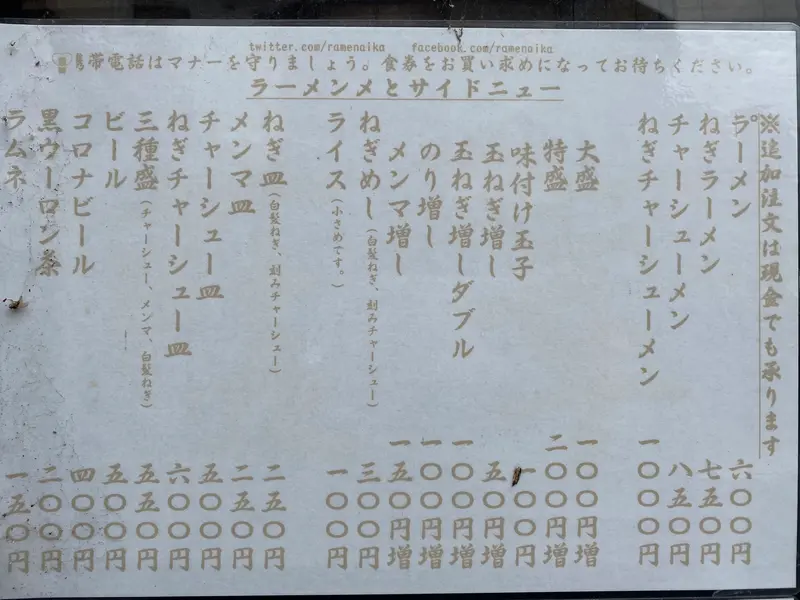 twitter.com/ramenaika facebook.com/ramenaika
携帯電話はマナーを守りましょう。食券をお買い求めになってお待ちください。
ラーメンメとサイドニュー
※追加注文は現金でも承ります
ラーメン 六〇〇円
ねぎラーメン 七五〇円
チャーシューメン 八五〇円
ねぎチャーシューメン 一〇〇〇円
大盛 一〇〇円増
特盛 二〇〇円増
味付け玉子 一〇〇円
玉ねぎ増し 五〇円増
玉ねぎ増しダブル 一〇〇円増
のり増し 一〇〇円増
メンマ増し 一五〇円増
ねぎめし(白髪ねぎ、刻みチャーシュー) 三〇〇円
ライス(小さめです。) 一〇〇円
ねぎ皿(白髪ねぎ、刻みチャーシュー) 二五〇円
メンマ皿 二五〇円
チャーシュー皿 五〇〇円
ねぎチャーシュー皿 六〇〇円
三種盛(チャーシュー、メンマ、白髪ねぎ) 五五〇円
ビール 五〇〇円
コロナビール 四〇〇円
黒ウーロン茶 二〇〇円
ラムネ 一五〇円